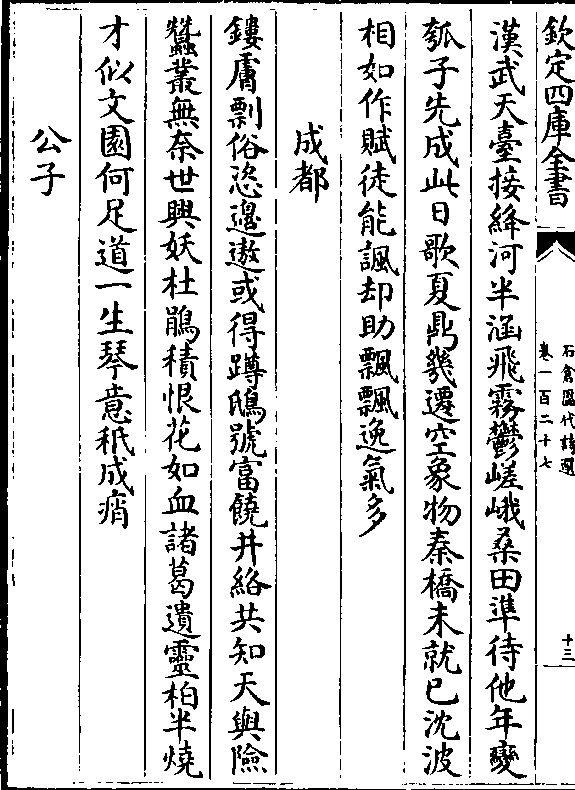 欽定四庫全書
石倉歷代詩選
卷一百二十七
十三
漢武天臺接絳河半涵飛霧鬱嵯峨桑田準待他年變
瓠子先成此日歌夏鼎幾遷空象物秦橋未就已沈波
相如作賦徒能諷却助飄飄逸氣多
成都
鏤膚剽俗恣邉遨或得蹲鴟號富饒井絡共知天與險
蠶叢無奈世興妖杜鵑積恨花如血諸葛遺靈柏半燒
才似文園何足道一生琴意秖成痟
公子